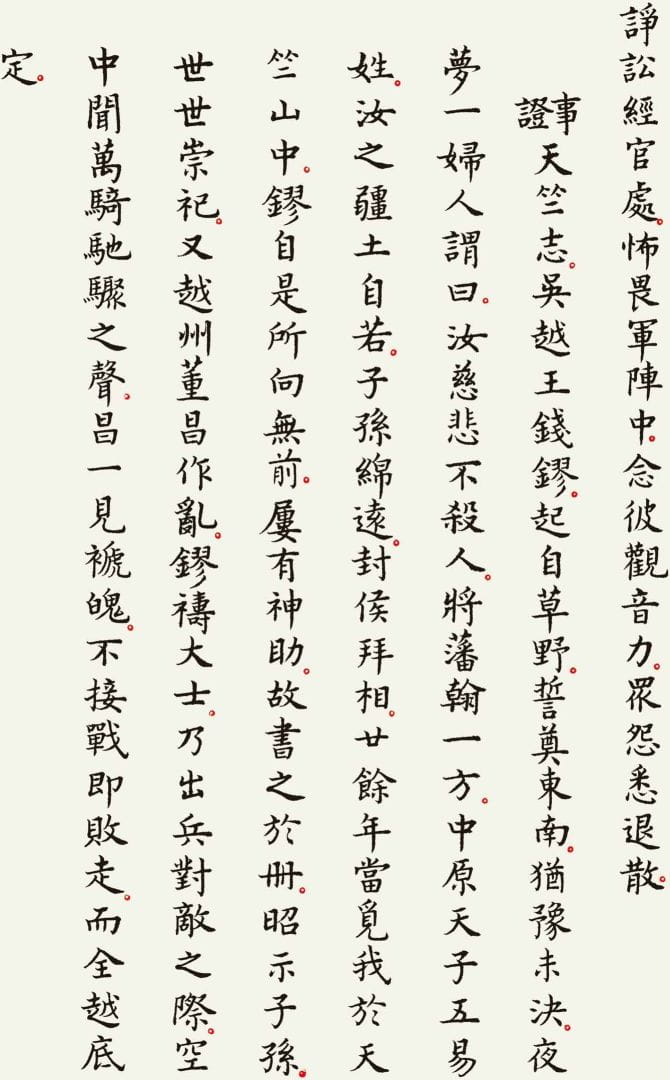 諍訟經官處。怖畏軍陣中。念彼觀音力。眾怨悉退散。
事證 天竺志。吳越王錢鏐。起自草野。誓奠東南。猶豫未決。夜
夢一婦人謂曰。汝慈悲不殺人。將藩翰一方。中原天子五易
姓。汝之疆土自若。子孫綿遠。封侯拜相。廿餘年當覓我於天
竺山中。鏐自是所向無前。屢有神助。故書之於冊。昭示子孫。
世世崇祀。又越州董昌作亂。鏐禱大士。乃出兵對敵之際。空
中聞萬騎馳驟之聲。昌一見褫魄。不接戰即敗走。而全越底
定。